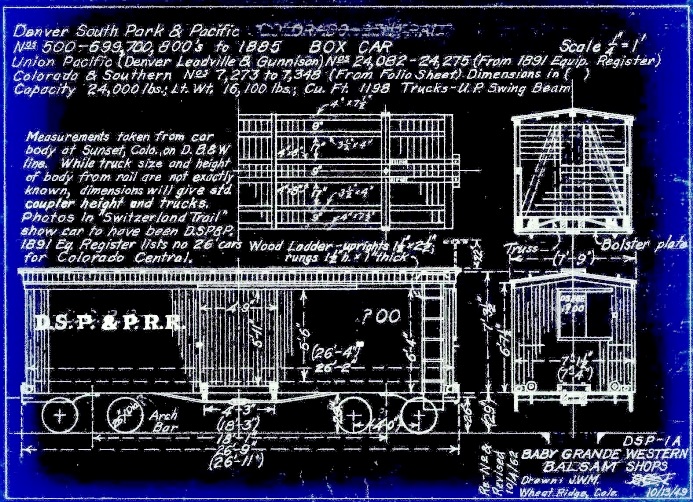 Denver South Park & Pacific
Nos 500-699,700,800's to 1885 BOX CAR Scale ¼"=1'
Union Pacific (Denver Leadville & Gunnison) Nos 24,082-24,275 (From 1891 Equip. Register)
Colorado & Southern Nos 7,273 to 7,348 (From Folio Sheet) Dimensions in ( )
Capacity 24,000 lbs.; Lt. Wt. 16,100 lbs.; Cu. Ft. 1198 Trucks-U.P. Swing Beam
Measurements taken from car
body at Sunset, Colo., on D.B.&W
line. While truck size and height
of body from rail are not exactly
known, dimensions will give std.
coupler height and trucks.
Photos in "Switzerland Trail"
show car to have been D.S.P.&P.
1891 Eq. Register lists no 26' cars
for Colorado Central.
9"
9"
Wood Ladder-uprights
rungs 1½ h. × 1" thick
Truss
(7'-9")
Bolster plate
D.S.P. & P.R.R.
4'-9"
5'-11"
5'-6"
(26'-4")
26'-2"
6'-4"
?00
Arch
Bar
4'-3"
(18'-3")
18'-1"
26'-9"
(26'-11")
Revised
10/1/62
DSP-1A
BABY GRANDE WESTERN
BALSAM SHOPS
Drawn: J.W.M.
Wheat Ridge, Colo. 10/13/49